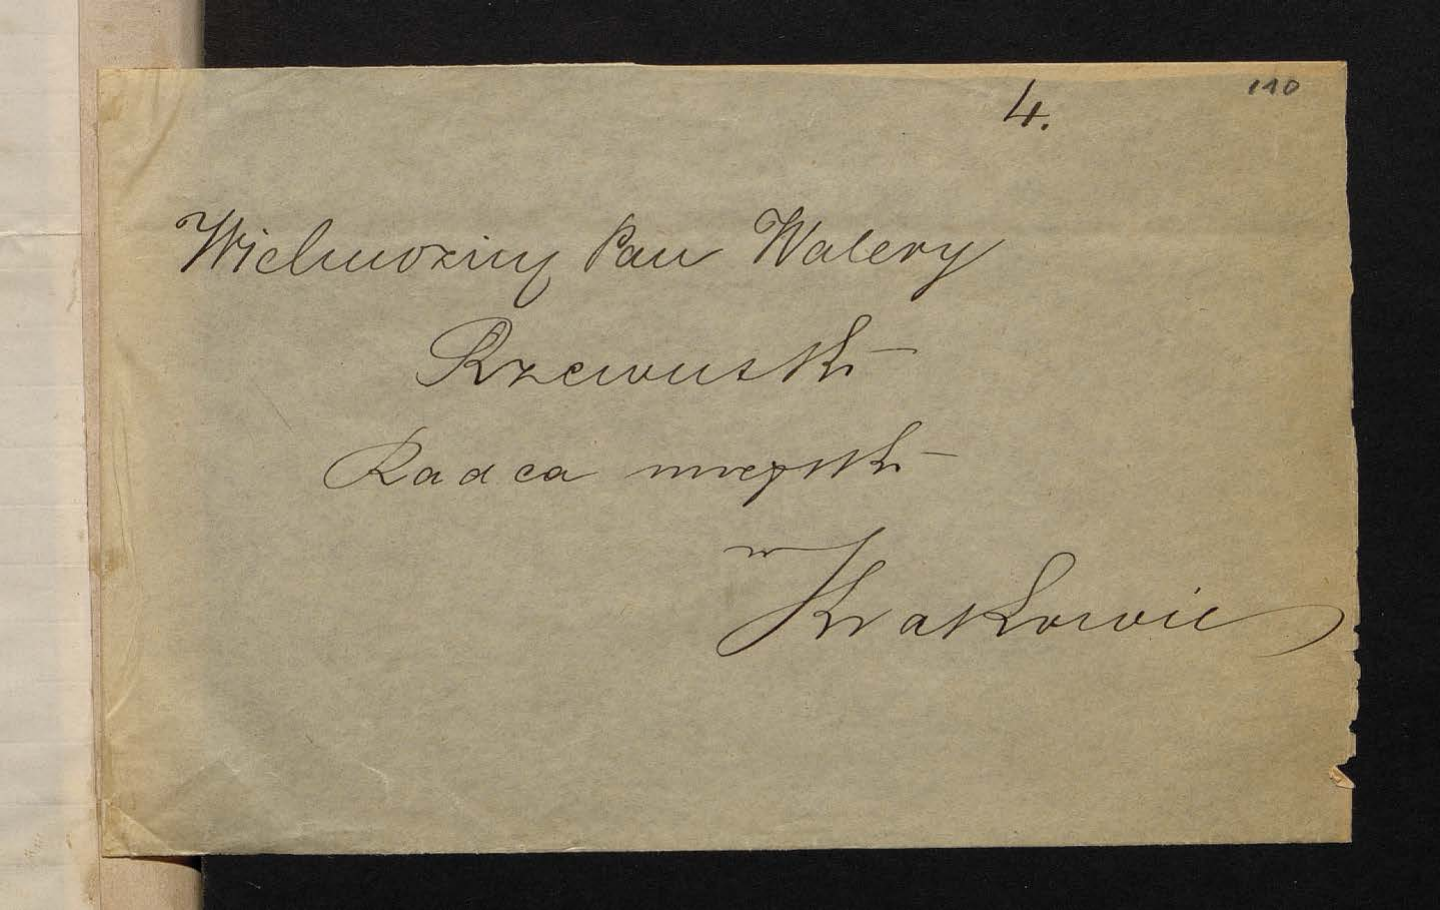 4.
110
Wielmożny Pan Walery
Rzewuski
Radca miejski
w Krakowie